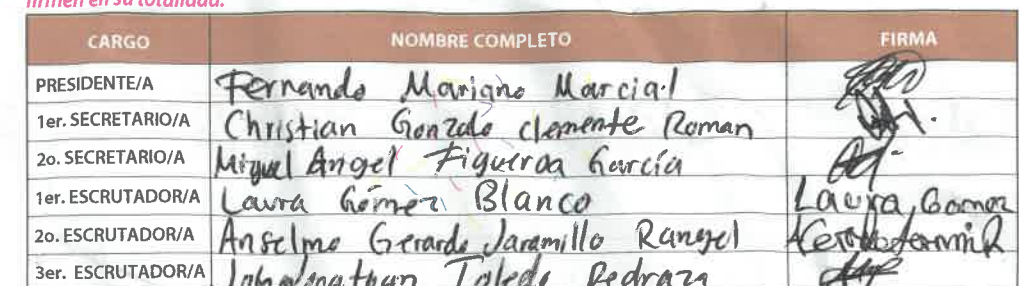 firmen en su totalidad.
CARGO NOMBRE COMPLETO FIRMA
PRESIDENTE/A Fernando Mariano Marcial
1er. SECRETARIO/A Christian Gonzalo clemente Roman
2o. SECRETARIO/A Miguel Angel Figueroa García
1er. ESCRUTADOR/A Laura Gómez Blanco Laura Gomez
2o. ESCRUTADOR/A Anselmo Gerardo Jaramillo Rangel
3er. ESCRUTADOR/A Toledo Pedraza